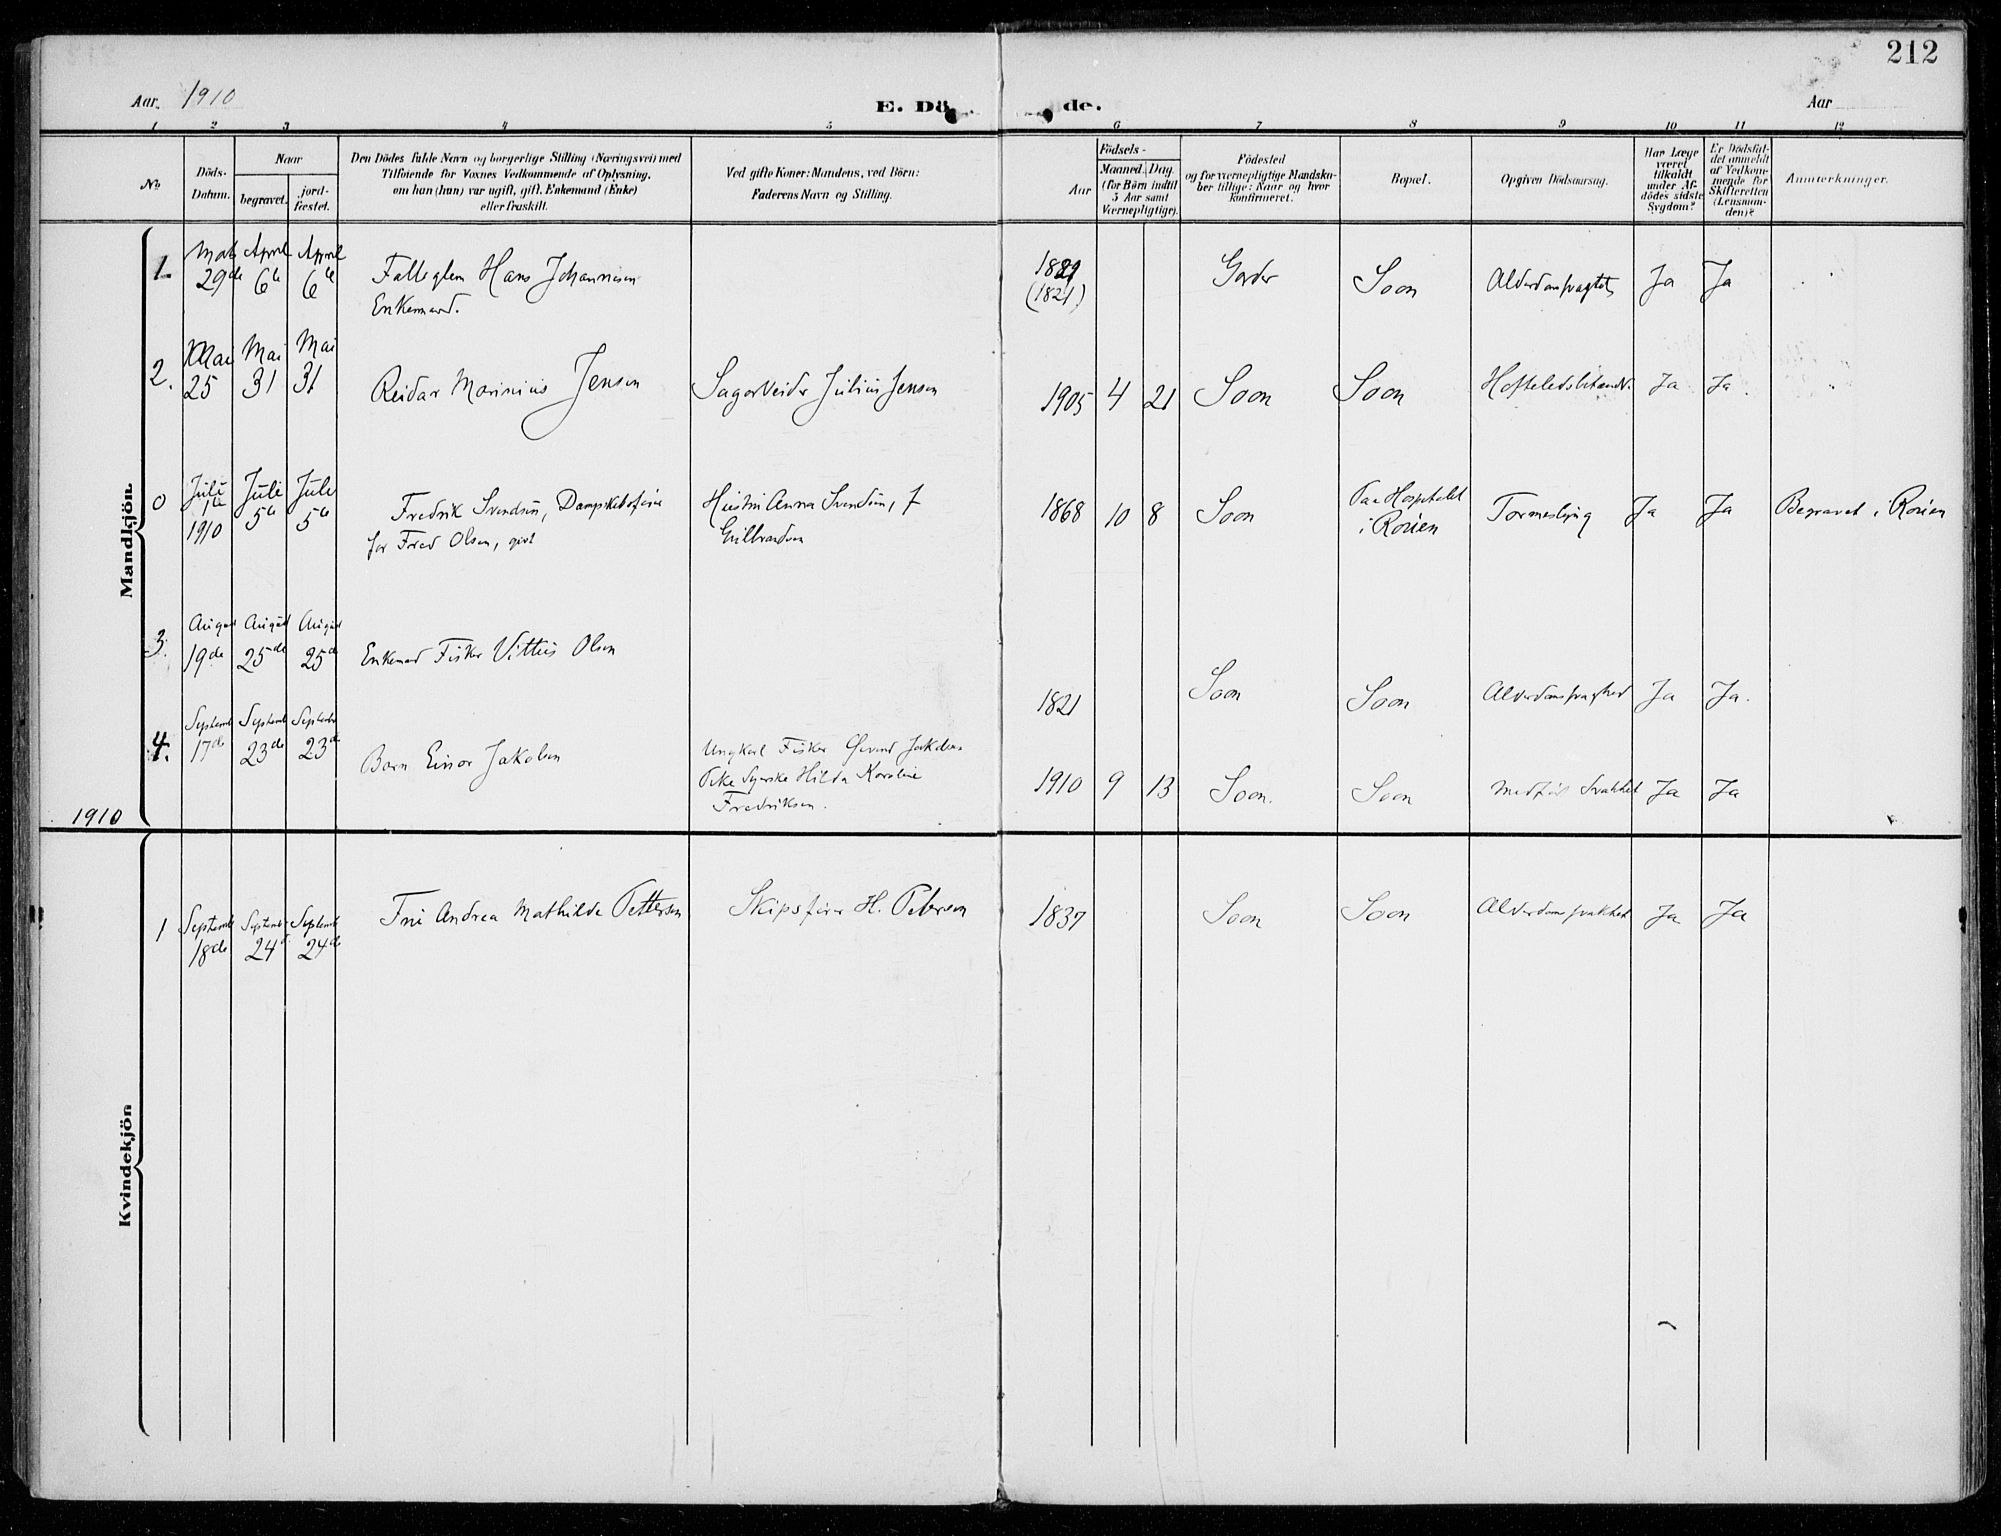 212
Aar. 1910
E. Dö de.
Aar
1 2 3 4 5 6 7 8 9 10 11 12
No
Döds-
Datum.
Naar
begravet.
jord-
fæstet.
Den Dödes fulde Navn og borgerlige Stilling (Næringsvei) med
Tilföiende for Voxnes Vedkommende af Oplysning,
om han (hun) var ugift, gift, Enkemand (Enke)
eller fraskilt.
Ved gifte Koner: Mandens, ved Börn:
Faderens Navn og Stilling.
Aar
Födsels-
Maaned. Dag.
(for Børn indtil
5 Aar samt
Værnepligtige).
Födested
og for værnepligtige Mandska-
ber tillige: Naar og hvor
konfirmeret.
Bopæl.
Opgiven Dödsaarsag.
Har Læge
været
tilkaldt
under Af-
dödes sidste
Sygdom?
Er Dödsfal-
det anmeldt
af Vedkom-
mende for
Skifteretten
(Lensman-
den)?
Anmærkninger.
Mandkjön.
1. 29de April 6te April 6te Hans Johannesen
Enkemand.
(1821) Soon Ja Ja
2. Mai 25 Mai 31 Mai 31 Reidar Marinius Jensen Julius Jensen 1905 4 21 Soon Soon Ja Ja.
0 Juli 1910 Juli 5te Juli 5te Fredrik Svendsen,
for Fred Olsen, gift
Anna Svendsen, f
1868 10 8 Soon Paa Hospitalet
i Röien
Ja Ja Begravet i Röien
3. August 19de August 25de August 25de Enkemand Fisker Olsen
1821 Soon Soon Ja Ja.
4. Septemb 17de Septemb 23de Septemb 23de Barn Einar Jakobsen
Ungkarl Fisker Øivind Jakobsen
Pike Hilda Karoline
Fredriksen.
1910 9 13 Soon. Soon Medfödt Svakhet Ja Ja
1910
Kvindekjön
1 Septemb 18de Septemb 24de Septemb 24de Fru Andrea Mathilde Pettersen Skipsförer H. Petersen 1837 Soon Soon Alderdomssvakhet Ja Ja